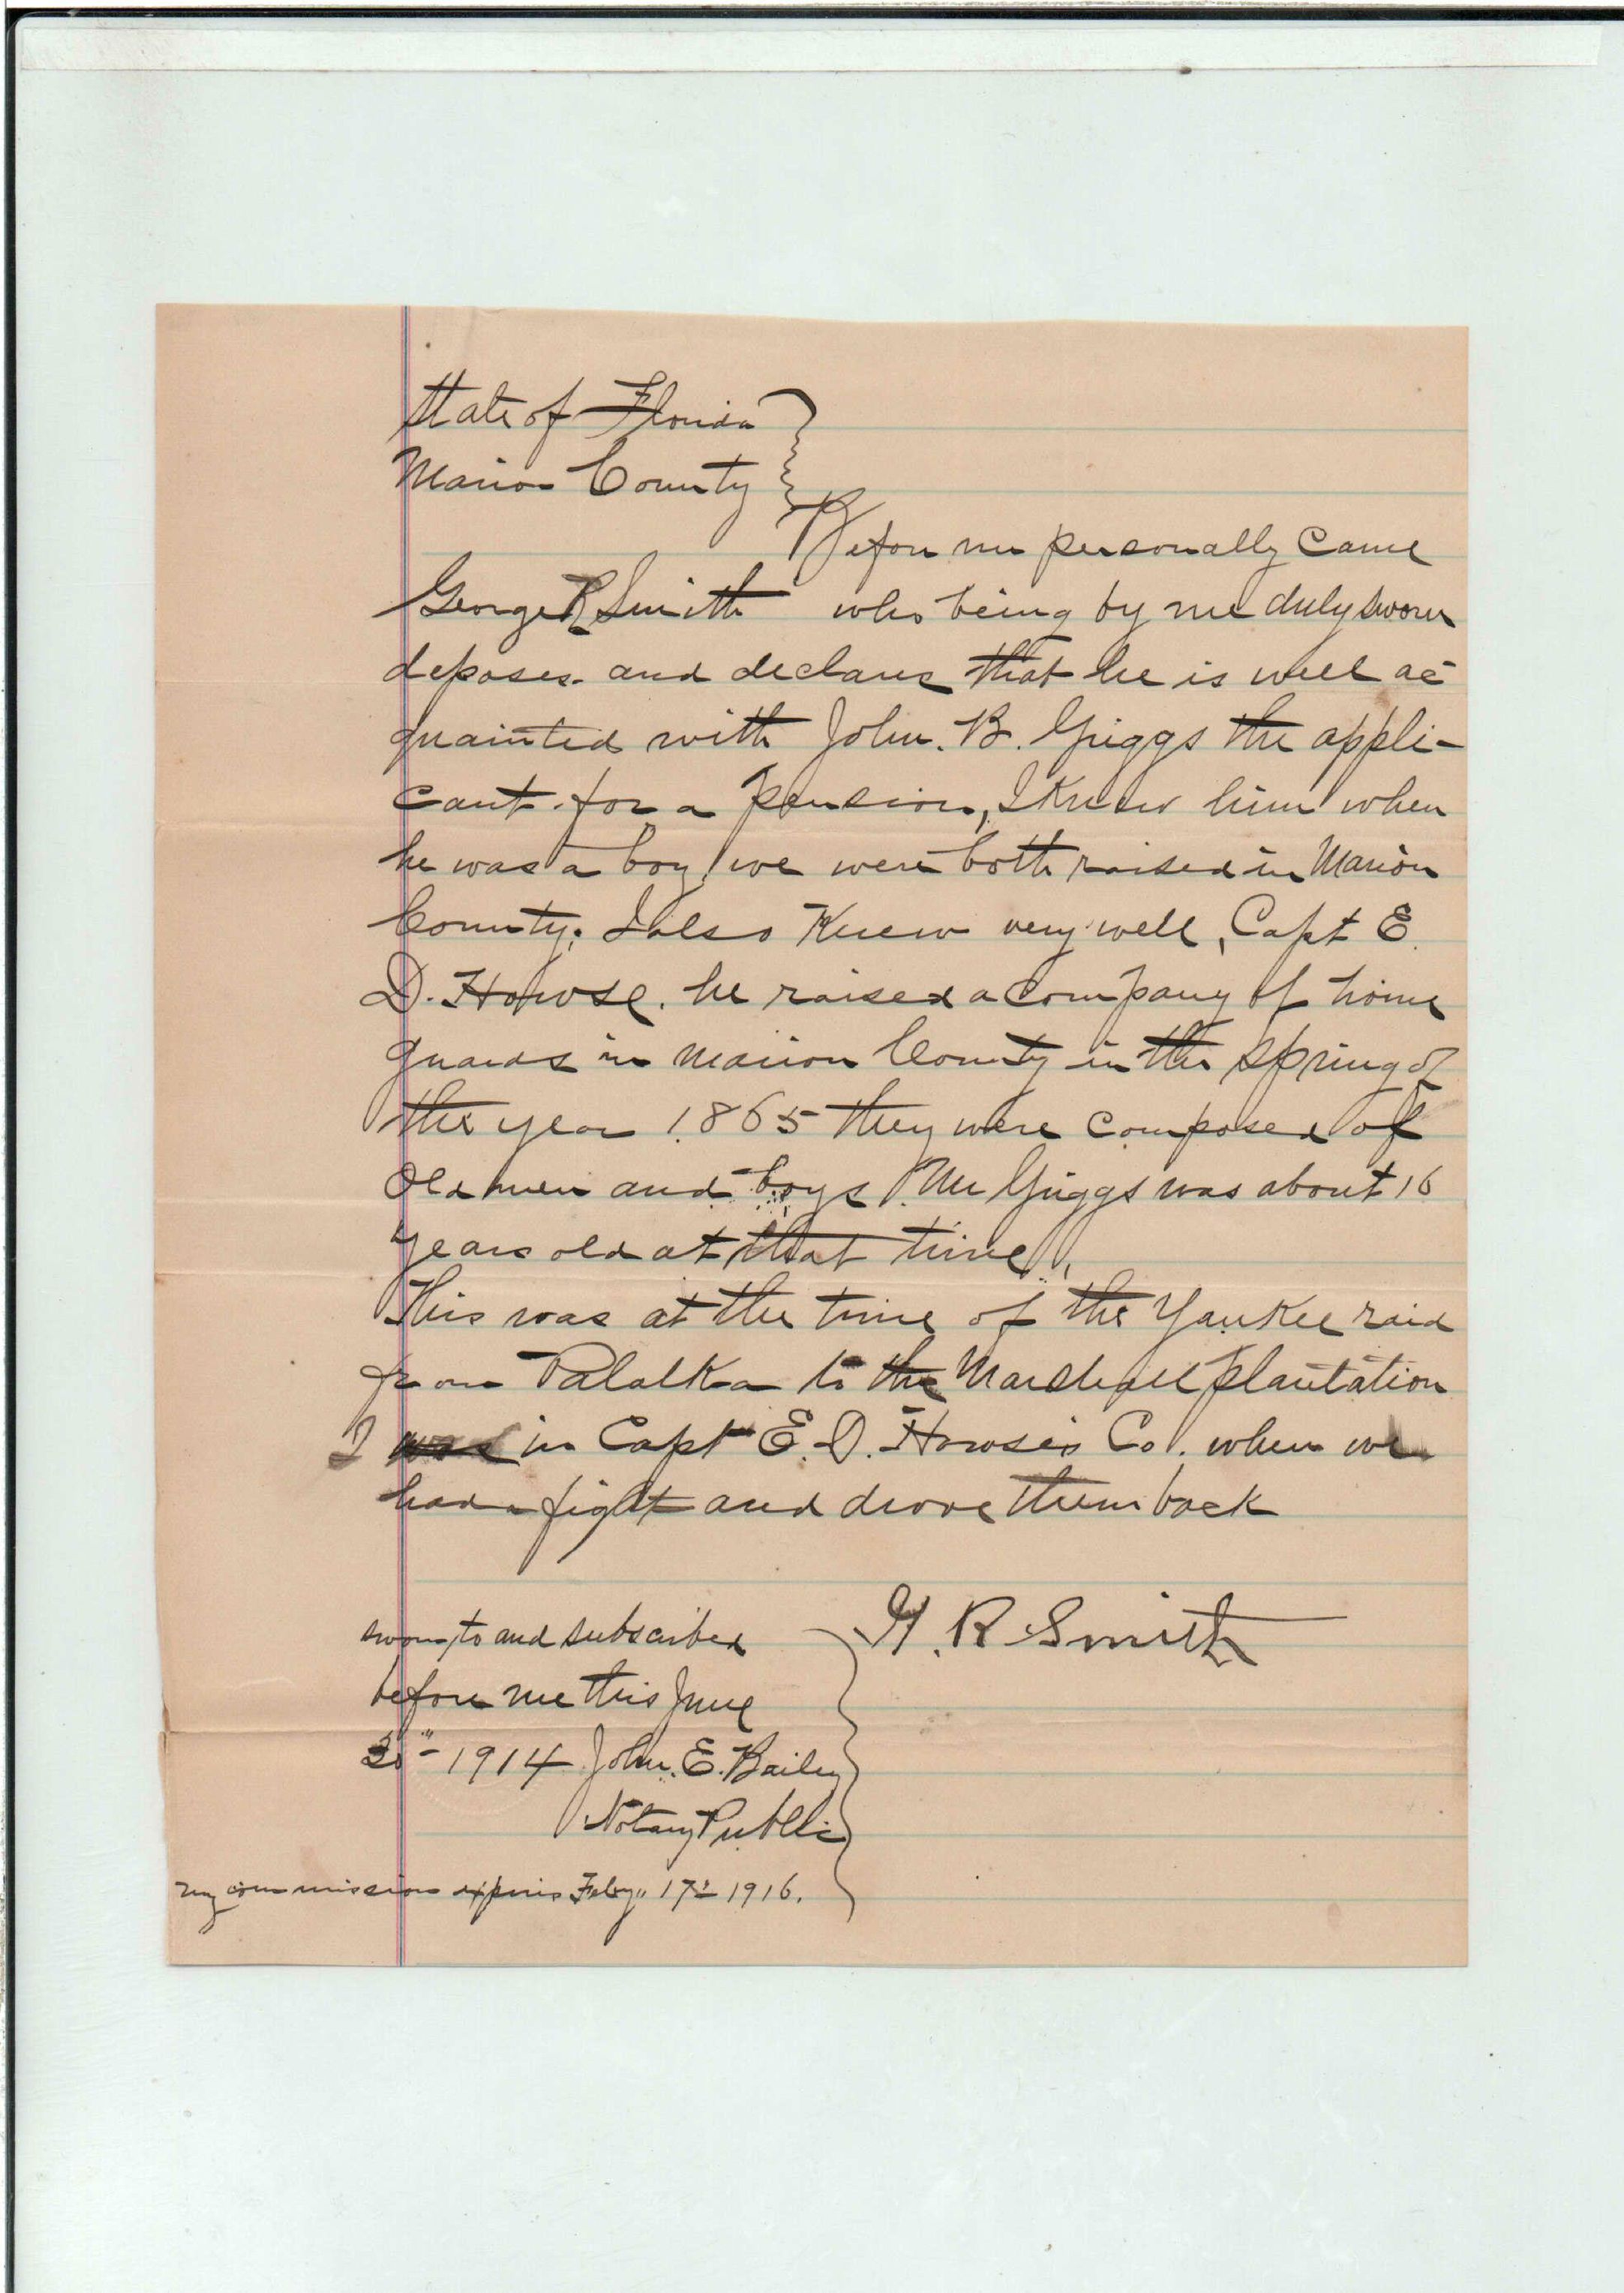 State of Florida
Marion County
Before me personally came
George R Smith who being by me duly sworn
deposes and declares that he is well ac
quainted with John. B. Griggs the appli-
cant for a pension, I knew him when
he was a boy, we were both raised in Marion
County. I also Knew very well, Capt E.
D. Howse. he raised a company of home
guards in Marion County in the spring of
the year 1865 they were composed of
old men and boys. Mr Griggs was about 16
years old at that time.
This was at the time of the Yankee raid
from Palatka to the Marshall plantation
I was in Capt E. D. Howse's Co. when we
had a fight and drove them back
G. R Smith
sworn to and subscribed
before me this June
1914 John. E. Bailey
Notary Public
my commission expires Feby 17th 1916.